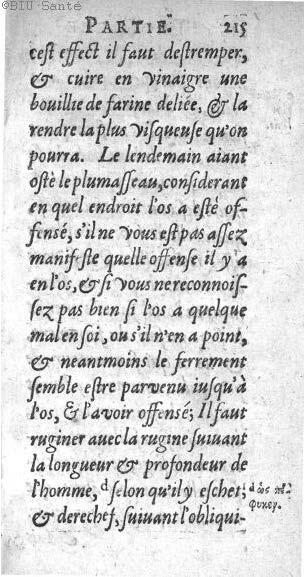 ©BIU Santé
PARTIE. 215
cest effect il faut destremper,
& cuire en vinaigre une
bouillie de farine deliée, & la
rendre la plus visqueuse qu'on
pourra. Le lendemain aiant
osté le plumasseau, considerant
en quel endroit l'os a esté of-
fensé, s'il ne vous est pas assez
manifeste quelle offense il y a
en l'os, & si vous ne reconnois-
sez pas bien si l'os a quelque
mal en soi, ou s'il n'en a point,
& neantmoins le ferrement
semble estre parvenu iusqu'à
l'os, & l'avoir offensé; Il faut
ruginer avec la rugine suivant
la longueur & profondeur de
l'homme, d selon qu'il y eschet; d ὡς πέ-
& derechef, suivant l'obliqui- φυκεν.